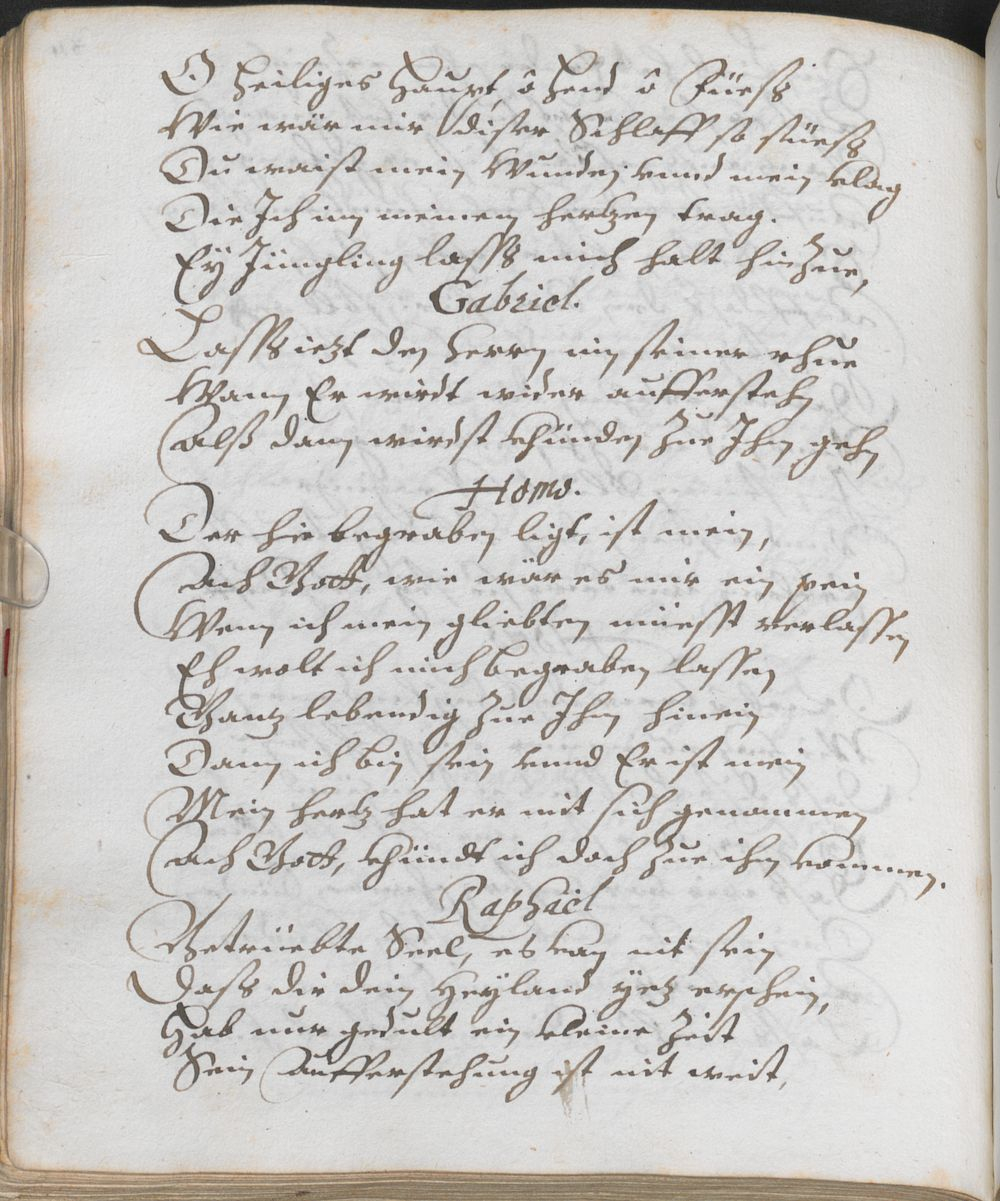 O heiliges Haupt, ô Hend ô Füess
Wie wär mir diser Schlaff so süess
Du waist mein Wunden vnnd mein klag
Die Ich inn meinem hertzen trag.
Ey Jüngling lasss mich halt hinzue,
Gabriel.
Lasss ietzt den Herrn inn seiner rhue
Wann Er wirdt wider aufferstehn
Alß dann wirdst khünden zue Ihm gehn
Homo.
Der hie begraben ligt, ist mein,
Ach Gott, wie wär es mir ein pein
Wenn ich mein gliebten müesst verlassen
Eh wolt ich mich begraben lassen
Gantz lebendig zue Ihm hinein
Dann ich bin sein vnnd Er ist mein
Mein hertz hat er mit sich genommen
Ach Gott, khündt ich doch zue ihm kommen.
Raphaël
Betrüebte Seel, es kan nit sein
Dass dir dein Heyland yetz erschein,
Hab nur gedult ein kleine Zeit
Sein Aufferstehung ist nit weit,